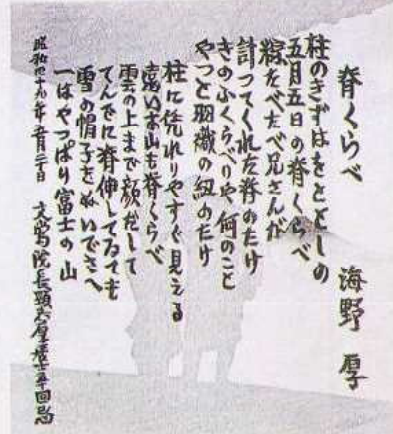 脊くらべ
海野 厚
柱のきずはをととしの
五月五日の脊くらべ
粽たべたべ兄さんが
計つてくれた脊のたけ
きのふくらべりや何のこと
やつと羽織の紐のたけ
柱に凭れりやすぐ見える
遠いお山も脊くらべ
雲の上まで顔だして
てんでに脊伸してゐても
雪の帽子をぬいでさへ
一はやつぱり富士の山
昭和四十九年五月二十日 文鸎院長顕志厚居士五十回忌